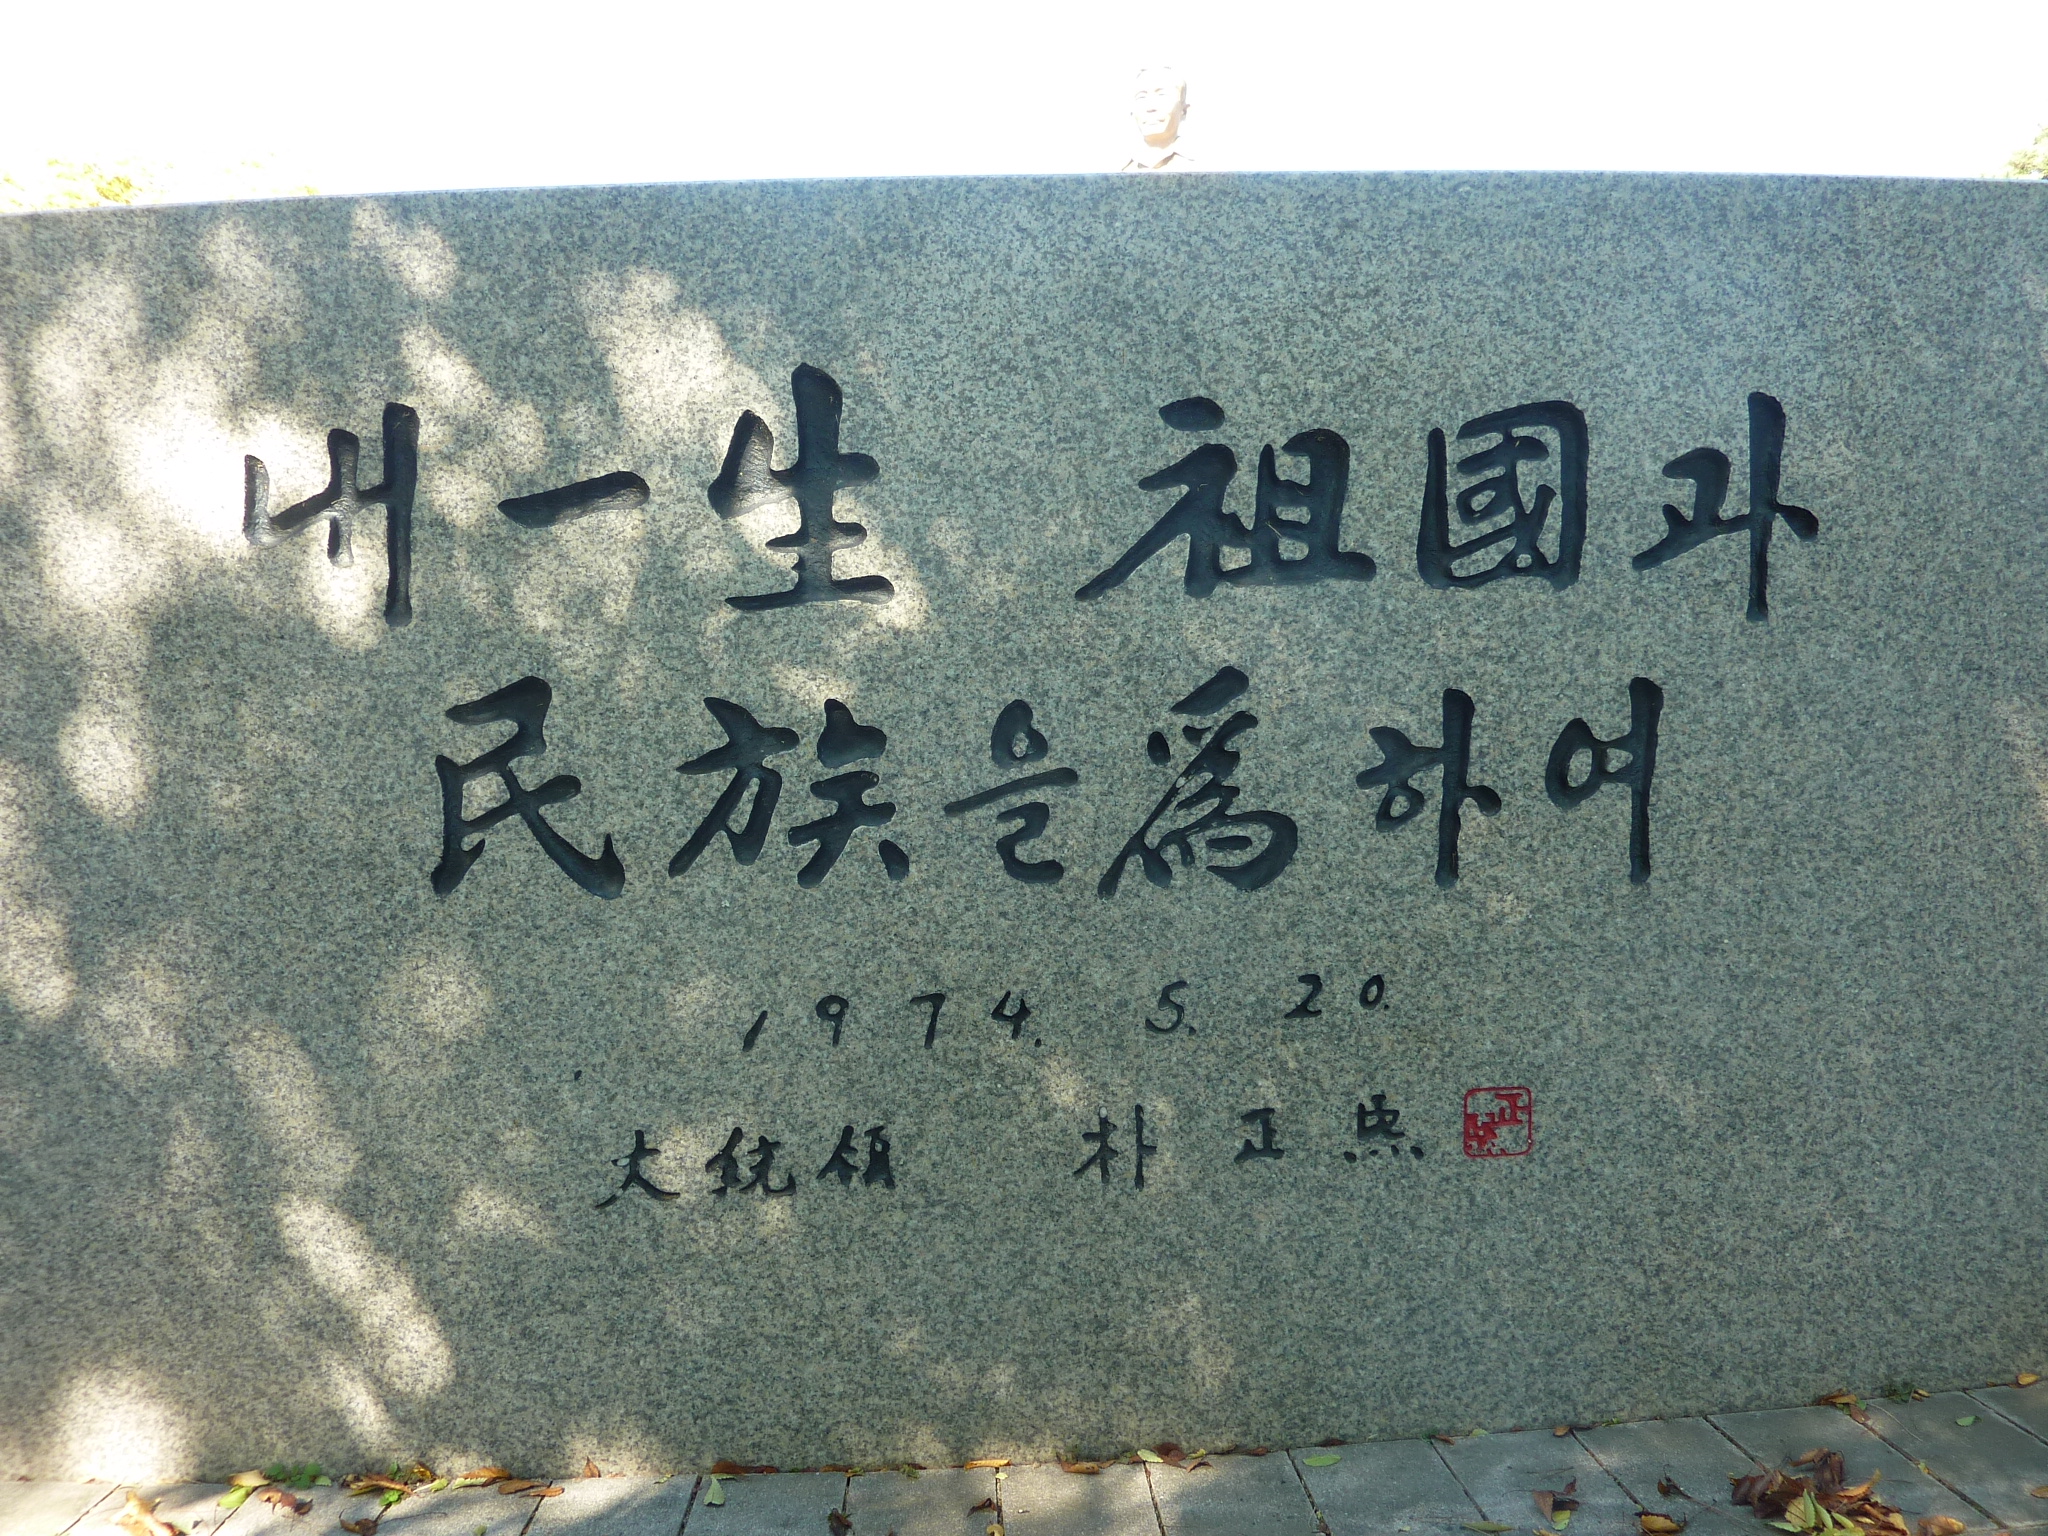 내 一 生 祖 國 과
民 族 을 爲 하 여
1974. 5. 20.
大統領 朴正熙